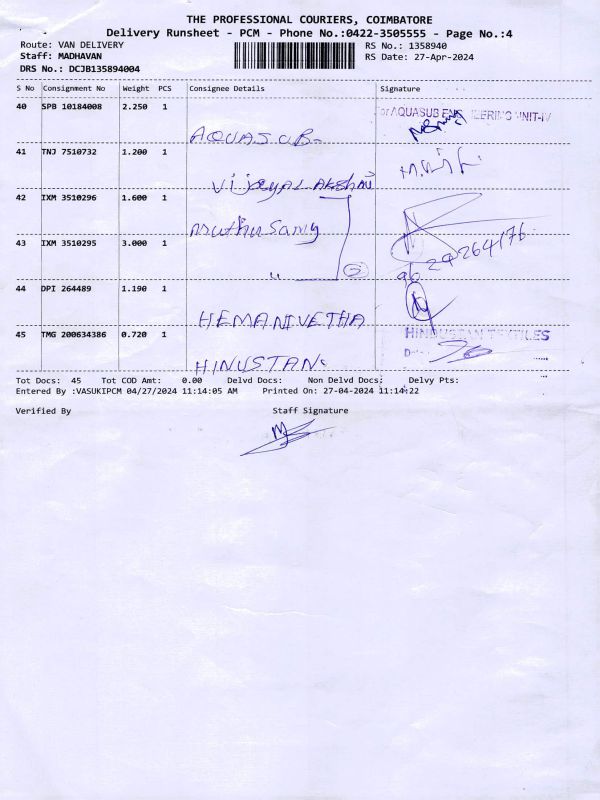 THE PROFESSIONAL COURIERS, COIMBATORE
Delivery Runsheet - PCM - Phone No.:0422-3505555 - Page No.:4
Route: VAN DELIVERY RS No.: 1358940
Staff: MADHAVAN RS Date: 27-Apr-2024
DRS No.: DCJB135894004
S No Consignment No Weight PCS Consignee Details Signature
40 SPB 10184008 2.250 1
For AQUASUB ENGINEERING UNIT-IV
AQUASUB-
41 TNJ 7510732 1.200 1
VIJAYALAKSHMI
42 IXM 3510296 1.600 1
Muthu Samy
43 IXM 3510295 3.000 1
" 2
44 DPI 264489 1.190 1
HEMANIVETHA
45 TMG 200634386 0.720 1
HINDUSTAN TEXTILES
HINUSTAN.
Tot Docs: 45 Tot COD Amt: 0.00 Delvd Docs: Non Delvd Docs: Delvy Pts:
Entered By :VASUKIPCM 04/27/2024 11:14:05 AM Printed On: 27-04-2024 11:14:22
Verified By Staff Signature